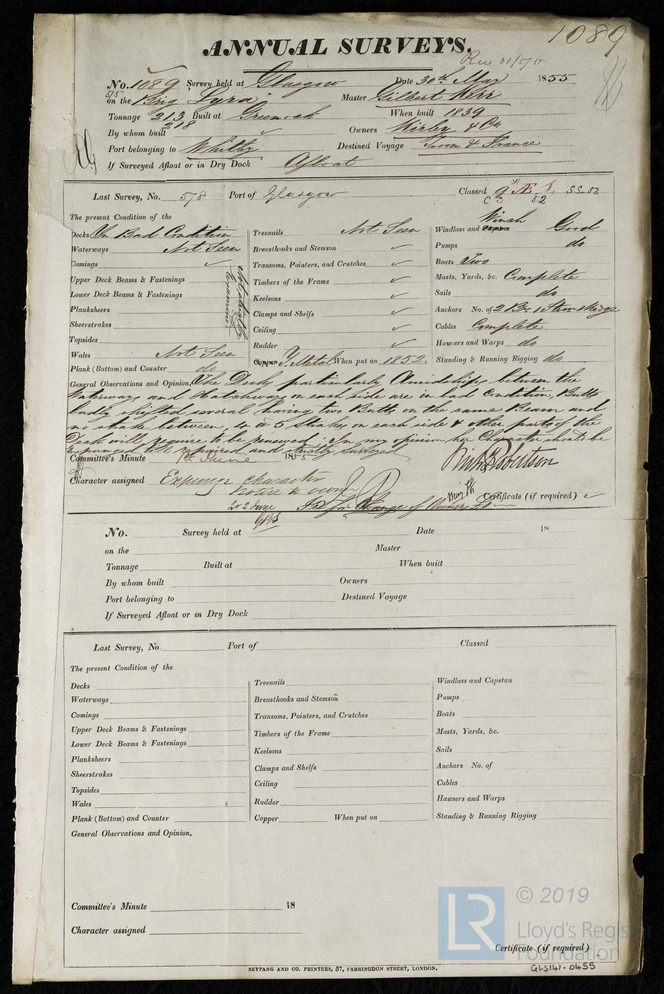 1089
ANNUAL SURVEYS.
Rec 31/5/55
No. 1089 Survey held at Glasgow Date 30th May 1855
on the Brig Lyra Master Gilbert Kerr
Tonnage 213 Built at Greenock When built 1839
218
By whom built Owners Kirley & Co
Port belonging to Whitby Destined Voyage Troon & France
If Surveyed Afloat or in Dry Dock Afloat
Last Survey, No. 578 Port of Glasgow Classed 9 Æ 1 SS 52
52
The present Condition of the
Decks In Bad Condition
Waterways Not Seen
Comings
Upper Deck Beams & Fastenings
Lower Deck Beams & Fastenings
Planksheers
Sheerstrakes
Topsides
Wales Not Seen
Plank (Bottom) and Counter do
Treenails Not Seen
Breasthooks and Stemson
Transoms, Pointers, and Crutches
Timbers of the Frame
Keelsons
Clamps and Shelfs
Ceiling
Rudder
Copper Y. Metal When put on 1852
Winch
Windlass and Capstan Good
Pumps do
Boats Two
Masts, Yards, &c. Complete
Sails do
Anchors No. of 2 Bor 1 Stm & Kedge
Cables Complete
Hawsers and Warps do
Standing & Running Rigging do
General Observations and Opinion, The Decks particularly Amidships between the
Waterways and Hatchways on each side are in bad Condition, Butts
badly shifted several having two Butts on the same Beam and
no strake between, 4 or 5 strakes on each side & other parts of the
Deck will require to be renewed, In my opinion her Character should be
Expunged till repaired and surveyed
Committee's Minute 1st June 1855 Robertson
Character assigned Expunge character
notice to owner
Certificate (if required)
2 June
No. Survey held at Date 18
on the Master
Tonnage Built at When built
By whom built Owners
Port belonging to Destined Voyage
If Surveyed Afloat or in Dry Dock
Last Survey, No. Port of Classed
The present Condition of the
Decks
Waterways
Comings
Upper Deck Beams & Fastenings
Lower Deck Beams & Fastenings
Planksheers
Sheerstrakes
Topsides
Wales
Plank (Bottom) and Counter
Treenails
Breasthooks and Stemson
Transoms, Pointers, and Crutches
Timbers of the Frame
Keelsons
Clamps and Shelfs
Ceiling
Rudder
Copper When put on
Windlass and Capstan
Pumps
Boats
Masts, Yards, &c.
Sails
Anchors No. of
Cables
Hawsers and Warps
Standing & Running Rigging
General Observations and Opinion,
Committee's Minute 18
Character assigned
Certificate (if required)
SEYFANG AND CO. PRINTERS, 57, FARRINGDON STREET, LONDON.
GLS141-0455
LR © 2019
Lloyd's Register
Foundation